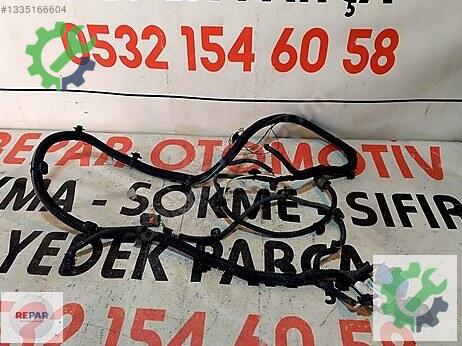 #1335166604
PARÇA
0532 154 60 58
REPAR OTOMOTİV
KMA - SÖKME - SIFIR
YEDEK PARÇA
REPAR
2 154 60 58